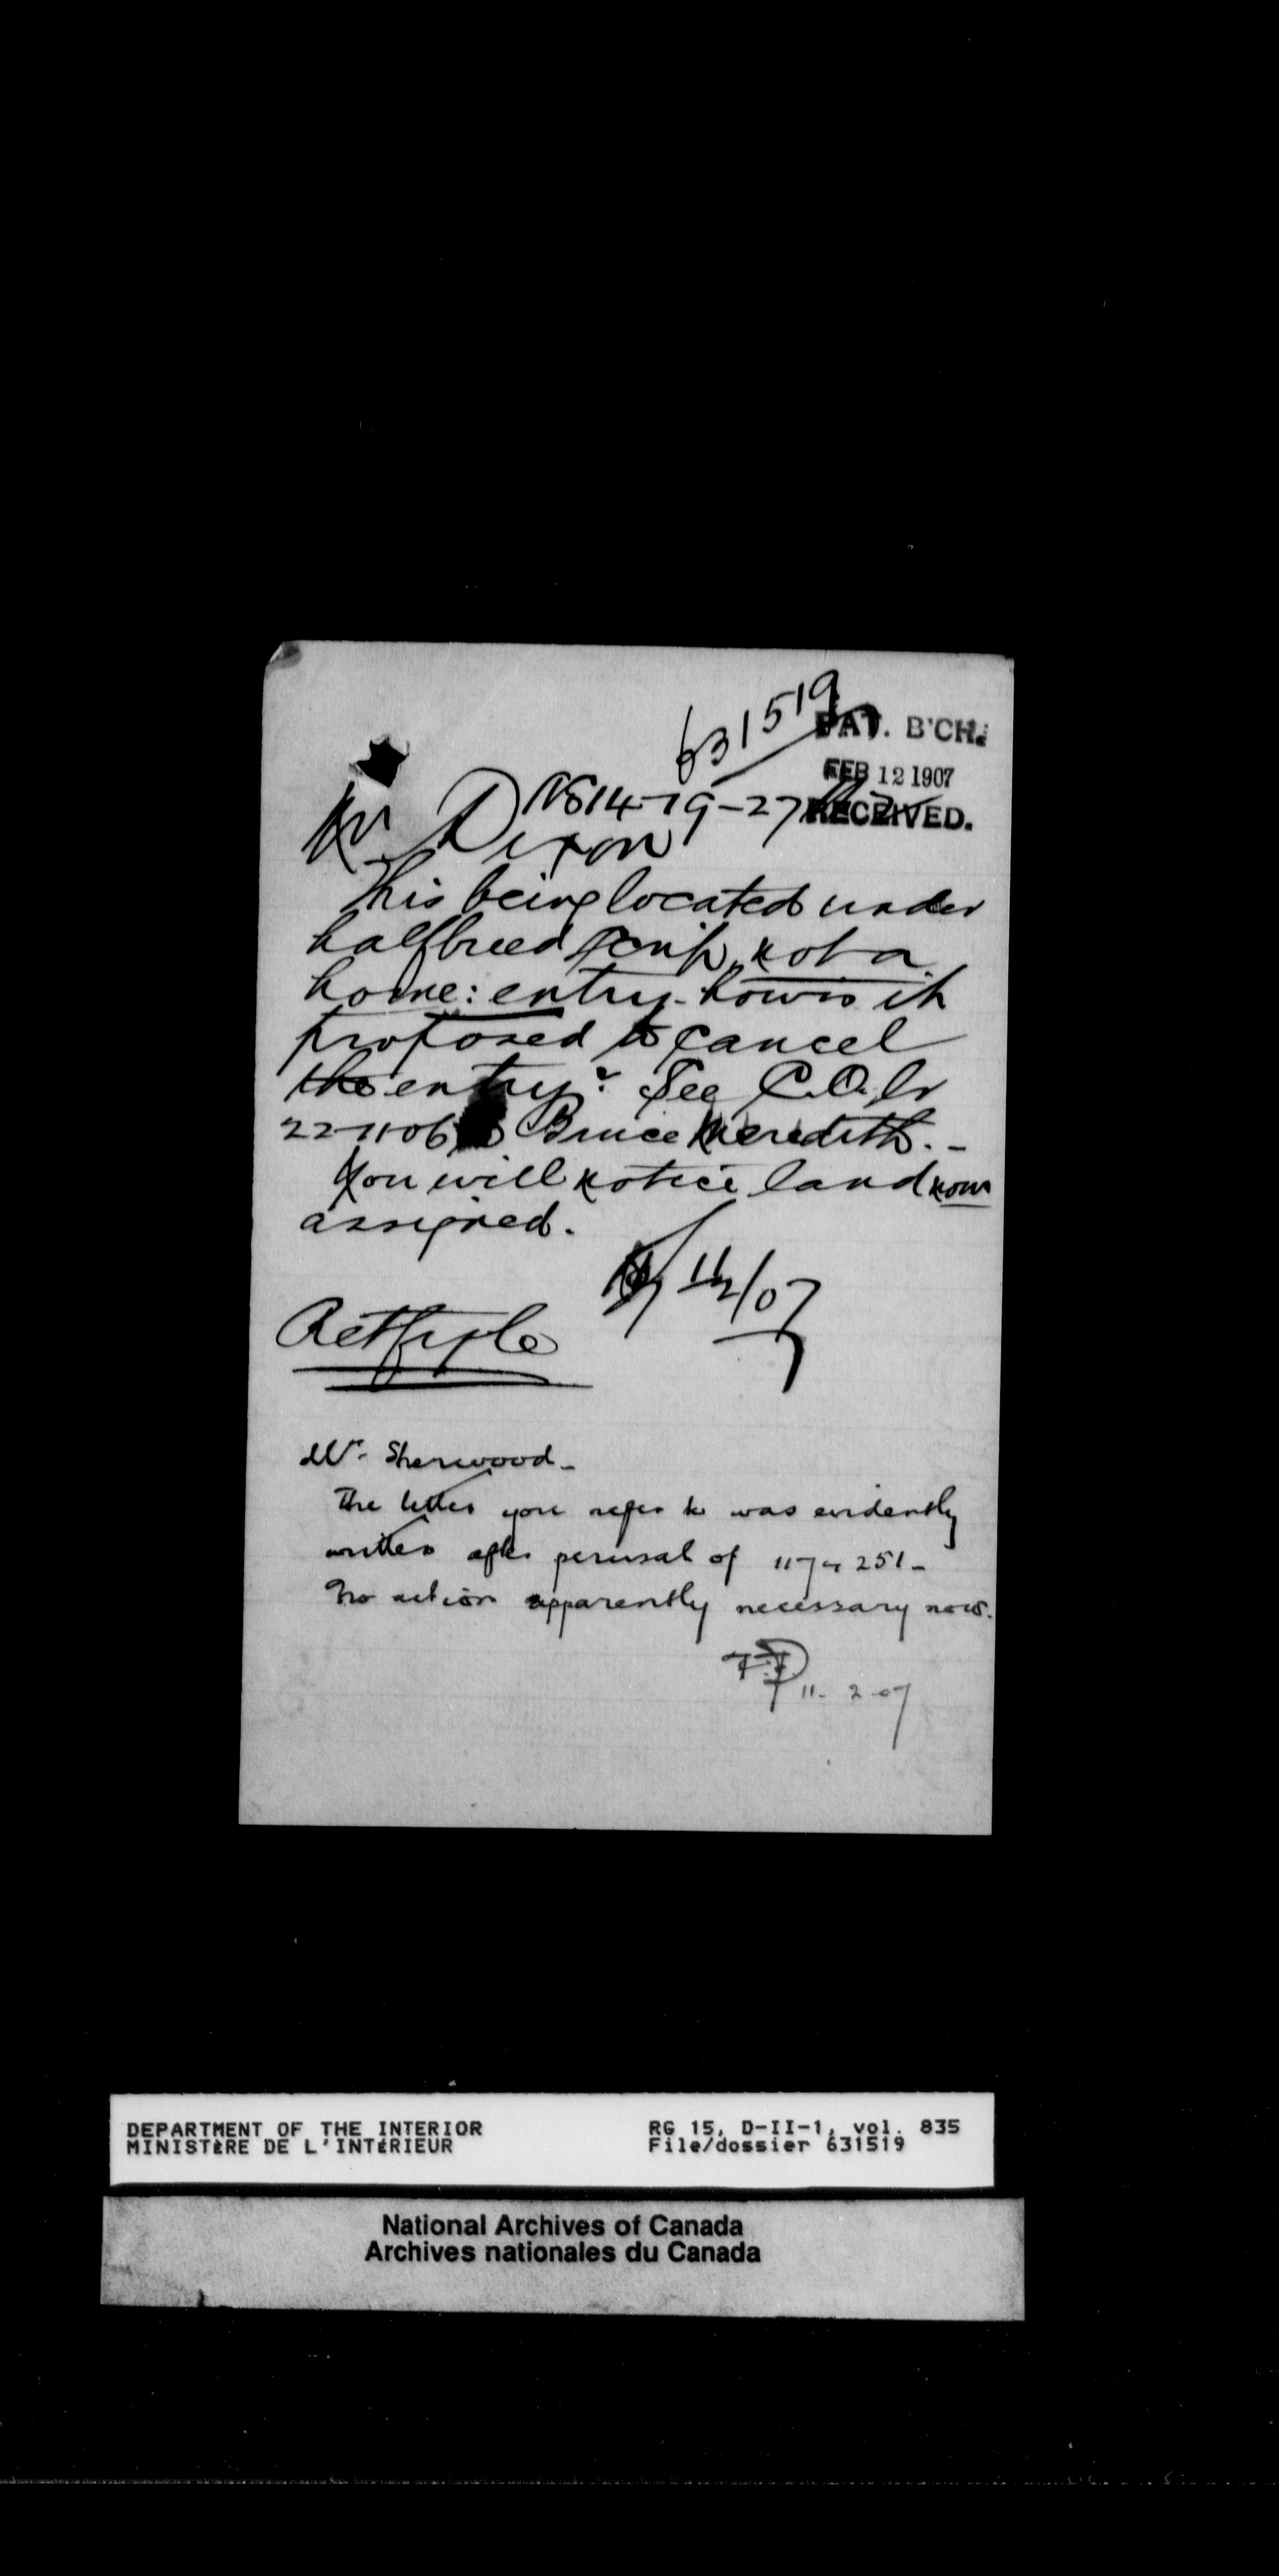 631519
PAT. B'CH.
FEB 12 1907
RECEIVED.
14-19-27
Mr. Dixon
This being located under
halfbreed scrip, not a
home: entry - how is it
proposed to cancel
the entry? See C.O. lr
22-11-06 to Bruce Meredith. -
You will notice land now
assigned.
11/2/07
Ret file
Mr. Sherwood -
The letter you refer to was evidently
written after perusal of 1174251 -
No action apparently necessary now.
11-2-07
DEPARTMENT OF THE INTERIOR
MINISTÈRE DE L'INTÉRIEUR
RG 15, D-II-1, vol. 835
File/dossier 631519
National Archives of Canada
Archives nationales du Canada